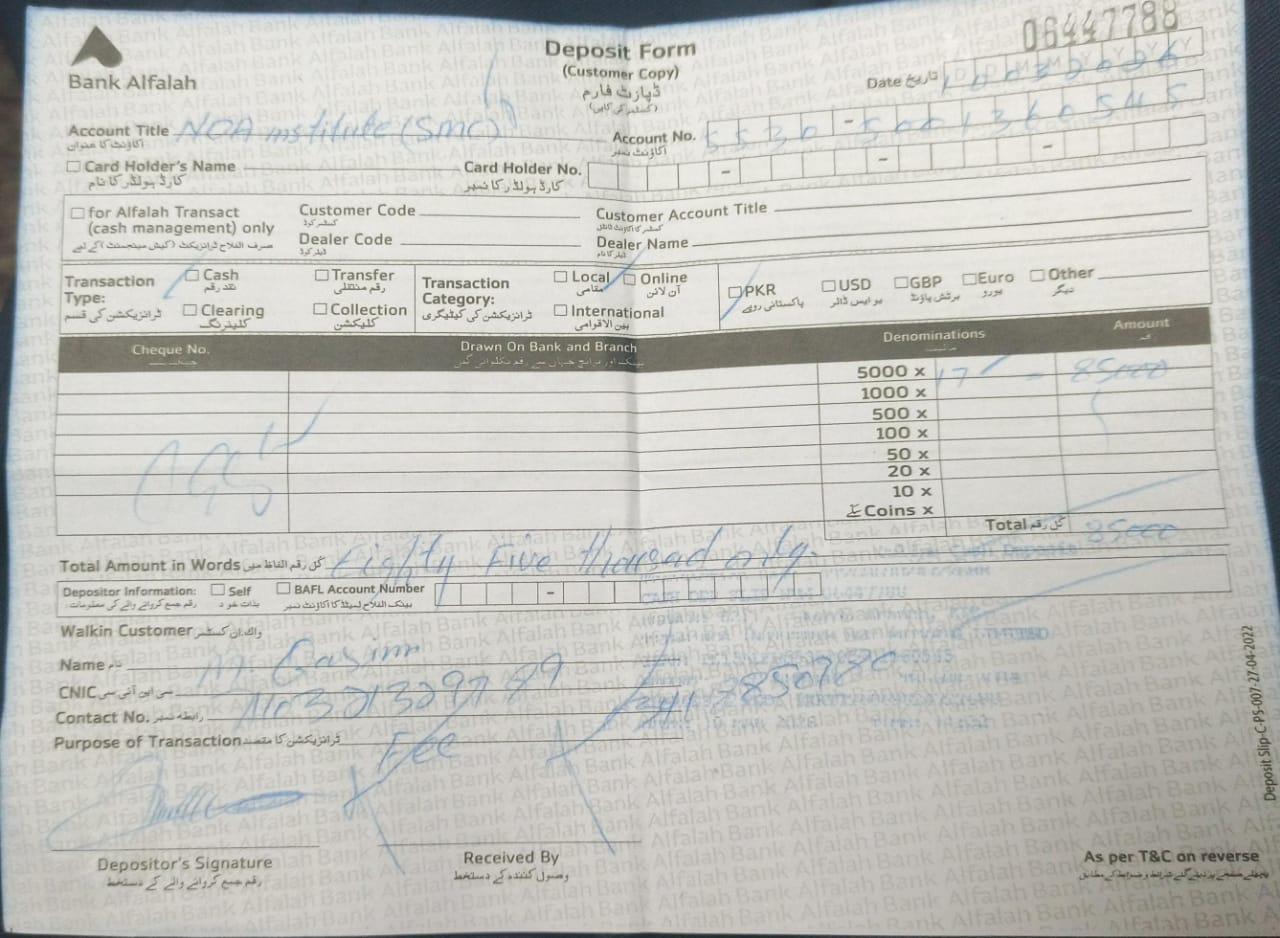 06447788
Bank Alfalah
Deposit Form
(Customer Copy)
ڈپازٹ فارم
(کسٹمر کی کاپی)
Date تاریخ
Account Title NCA institute (SMC)
اکاؤنٹ کا عنوان
Account No. 5530-5001360545
اکاؤنٹ نمبر
Card Holder's Name
کارڈ ہولڈر کا نام
Card Holder No.
کارڈ ہولڈر کا نمبر
for Alfalah Transact
(cash management) only
Customer Code
کسٹمر کوڈ
Customer Account Title
Dealer Code
ڈیلر کوڈ
Dealer Name
ڈیلر کا نام
Transaction Type:
ٹرانزیکشن کی قسم
Cash
نقد رقم
Transfer
رقم منتقلی
Clearing
کلیئرنگ
Collection
کلیکشن
Transaction Category:
ٹرانزیکشن کی کیٹیگری
Local
مقامی
Online
آن لائن
International
بین الاقوامی
PKR
پاکستانی روپے
USD
یو ایس ڈالر
GBP
برٹش پاؤنڈ
Euro
یورو
Other
دیگر
Cheque No.
Drawn On Bank and Branch
Denominations
Amount
رقم
5000 x 17 = 85000
1000 x
500 x
100 x
50 x
20 x
10 x
سکے Coins x
Total کل رقم 85000
Total Amount in Words کل رقم الفاظ میں Eighty Five thousad only.
Depositor Information:
رقم جمع کروانے والے کی معلومات:
Self
بذات خود
BAFL Account Number
بینک الفلاح لمیٹڈ کا اکاؤنٹ نمبر
Walkin Customer واک ان کسٹمر
Name نام M. Qasim
CNIC سی این آئی سی
Contact No. رابطہ نمبر
Purpose of Transaction ٹرانزیکشن کا مقصد Fee
Depositor's Signature
رقم جمع کروانے والے کے دستخط
Received By
وصول کنندہ کے دستخط
As per T&C on reverse
Deposit Slip-C-PS-007-27-04-2022